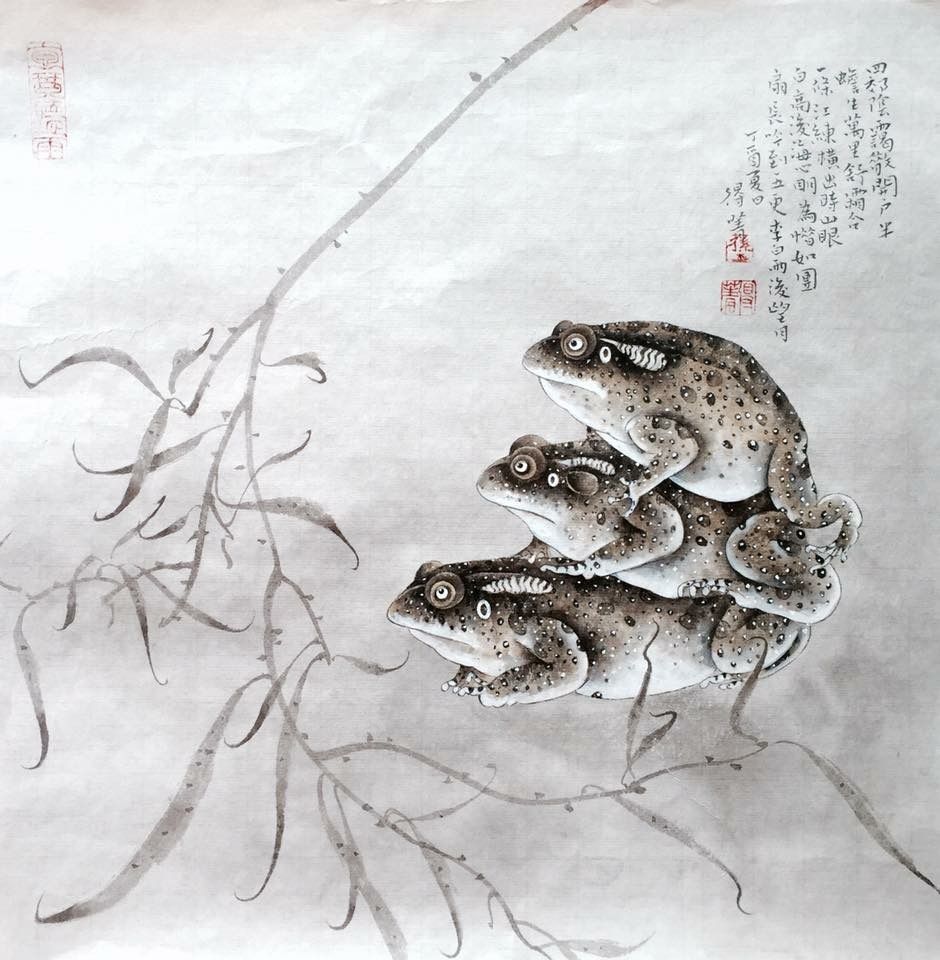 四郊陰靄散開戶半
蟾生萬里舒霜合
一條江練橫出時山眼
白高後海心明為惜如團
扇長吟到五更李白雨後望月
丁酉夏日
得